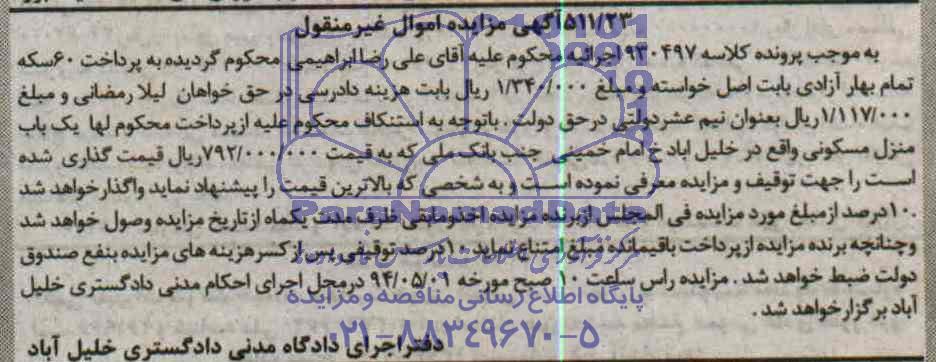 ۵۱۱/۲۳ آگهی مزایده اموال غیرمنقول
به موجب پرونده کلاسه ۹۳۰۴۹۷ اجرائیه محکوم علیه آقای علی رضا ابراهیمی محکوم گردیده به پرداخت ۶۰سکه
تمام بهار آزادی بابت اصل خواسته و مبلغ ۱/۳۴۰/۰۰۰ ریال بابت هزینه دادرسی در حق خواهان لیلا رمضانی و مبلغ
۱/۱۱۷/۰۰۰ریال بعنوان نیم عشردولتی درحق دولت . باتوجه به استنکاف محکوم علیه ازپرداخت محکوم لها یک باب
منزل مسکونی واقع در خلیل اباد خ امام خمینی جنب بانک ملی که به قیمت ۷۹۲/۰۰۰/۰۰۰ریال قیمت گذاری شده
است را جهت توقیف و مزایده معرفی نموده است و به شخصی که بالاترین قیمت را پیشنهاد نماید واگذارخواهد شد
.۱۰درصد ازمبلغ مورد مزایده فی المجلس ازبرنده مزایده اخذومابقی ظرف مدت یکماه ازتاریخ مزایده وصول خواهد شد
وچنانچه برنده مزایده ازپرداخت باقیمانده مبلغ امتناع نماید۱۰درصد توقیفی پس ازکسرهزینه های مزایده بنفع صندوق
دولت ضبط خواهد شد . مزایده راس ساعت ۱۰ صبح مورخه ۹۴/۰۵/۰۹ درمحل اجرای احکام مدنی دادگستری خلیل
آباد برگزارخواهد شد .
دفتراجرای دادگاه مدنی دادگستری خلیل آباد
ParsNamadData
پایگاه اطلاع رسانی مناقصه و مزایده
۰۲۱-۸۸۳۴۹۶۷۰-۵